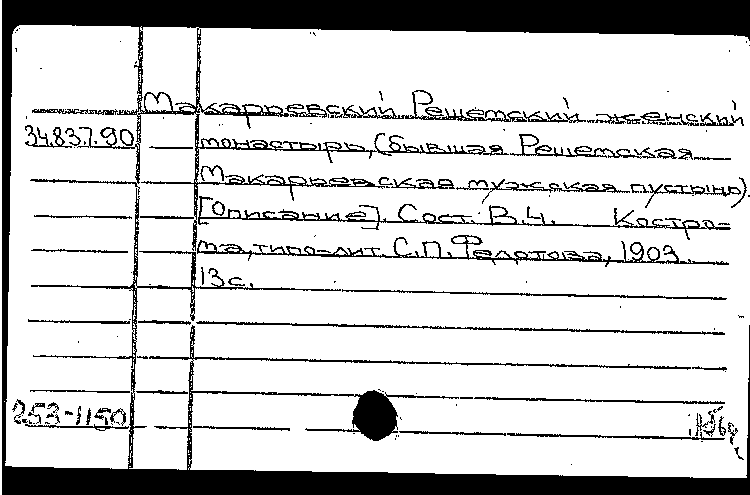 Макарьевский Решемский женский
34.837.90 монастырь, (бывшая Решемская
Макарьевская мужская пустынь).
[Описание]. Сост. В.Ч. Костро=
ма, типо-лит. С.П. Федотова, 1903.
13 с.
253-1150